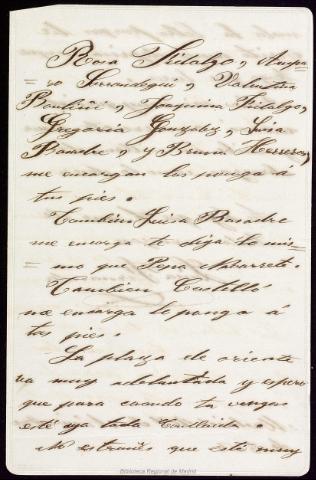 Rosa Hidalgo, Ampa=
ro Surrandegui, Valentina
Pauliñi, Joaquina Hidalgo,
Gregoria Gonzalez, Luisa
Basadre, y Bruna Herrera,
me encargan las ponga á
tus pies.
Tambien Luisa Basadre
me encarga te diga lo mis=
mo que Pepa Navarrete.
Tambien Castilló
me encarga le ponga á
tus pies.
La plaza de oriente
va muy adelantada y espero
que para cuando tu vengas
esté ya toda Concluida.
No estrañes que esté muy
Biblioteca Regional de Madrid